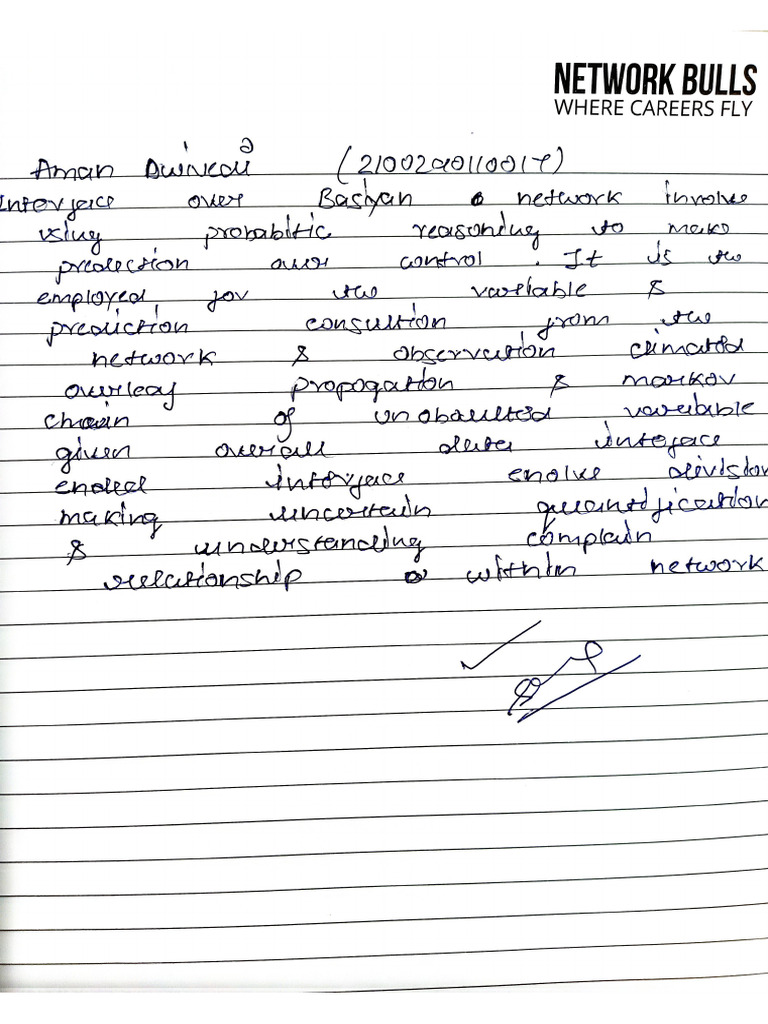 NETWORK BULLS
WHERE CAREERS FLY
Aman Dwivedi (2100290110017)
Interface over Basyan network involve
using probabitic reasoning to make
predection over control. It is the
employed for the variable &
prediction consultion from the
network & observation
overleaf propogation & markov
chain of varibible
given overall data inteface
ended interface enolve division
making uncertain quantification
& understanding complain
relationship withtin network